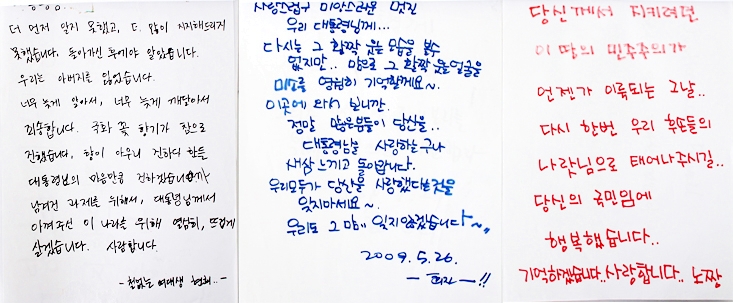 더 먼저 알지 못했고, 더 많이 지지해드리지
못했습니다. 돌아가신 후에야 알았습니다.
우리는 아버지를 잃었습니다.
너무 늦게 알아서, 너무 늦게 깨달아서
죄송합니다. 국화 꽃 향기가 참으로
진했습니다. 향이 아무리 진하다 한들
대통령님의 마음만큼 진하겠습니까
남겨진 과제를 위해서, 대통령님께서
아껴주신 이 나라를 위해 열심히, 뜨겁게
살겠습니다. 사랑합니다.
- 철없는 여대생 현희..-
사랑스럽구 미안스러운 멋진
우리 대통령님께...
다시는 그 활짝 웃는 모습을 볼수
없지만.. 맘으로 그 활짝 웃는얼굴을
미소를 영원히 기억할게요~.
이곳에 와서 보니깐..
정말 많은분들이 당신을..
대통령님을 사랑하는구나
새삼 느끼고 돌아갑니다.
우리모두가 당신을 사랑했다는것을
잊지마세요~.
우리도 그 맘 잊지않겠습니다~.
2009.5.26.
당신께서 지키려던
이 땅의 민주주의가
언젠가 이룩되는 그날..
다시 한번 우리 후손들의
나랏님으로 태어나주시길..
당신의 국민임에
행복했습니다..
기억하겠습니다..사랑합니다.. 노짱